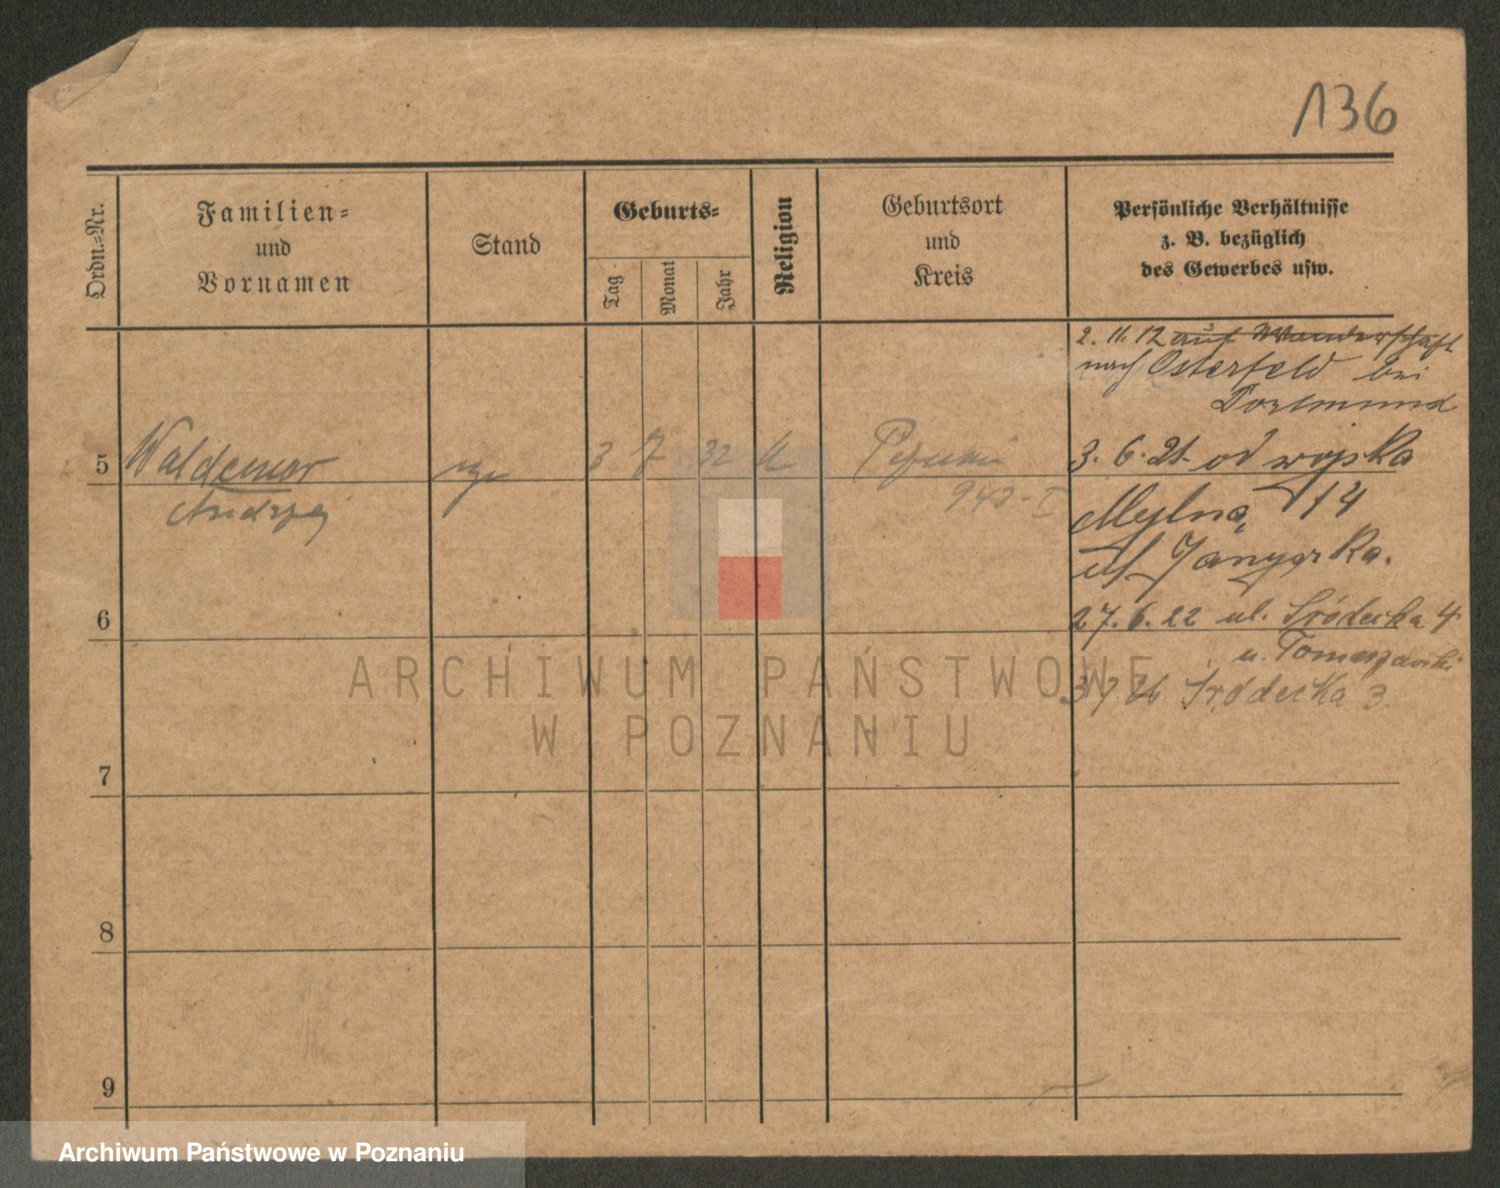 136
Ordn.-Nr.
Familien-
und
Vornamen
Stand
Geburts-
Tag
Monat
Jahr
Religion
Geburtsort
und
Kreis
Persönliche Verhältnisse
z. B. bezüglich
des Gewerbes usw.
2. 11. 12 auf Wanderschaft
nach Osterfeld bei
Dortmund
5 Waldemar 3 7 32 3. 6. 21. od wojska
Andrzej 14
6 27. 6. 22 ul. Śródecka 4
u. Tomaszewski
Śródecka 3.
7
8
9
ARCHIWUM PAŃSTWOWE
W POZNANIU
Archiwum Państwowe w Poznaniu